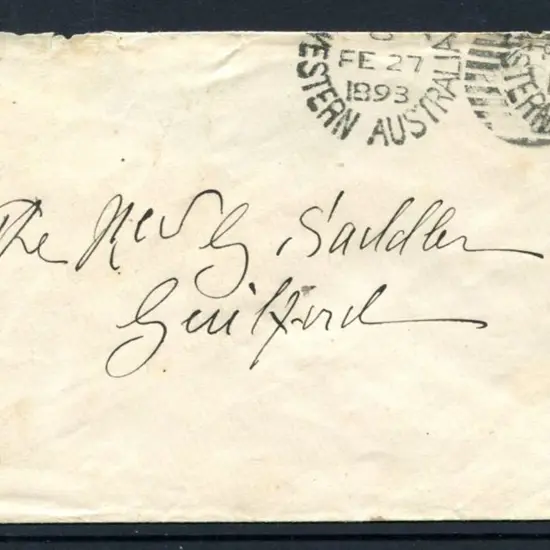 FE 27
1893
WESTERN AUSTRALIA
STERN
The Rev G Saddler
Guilford